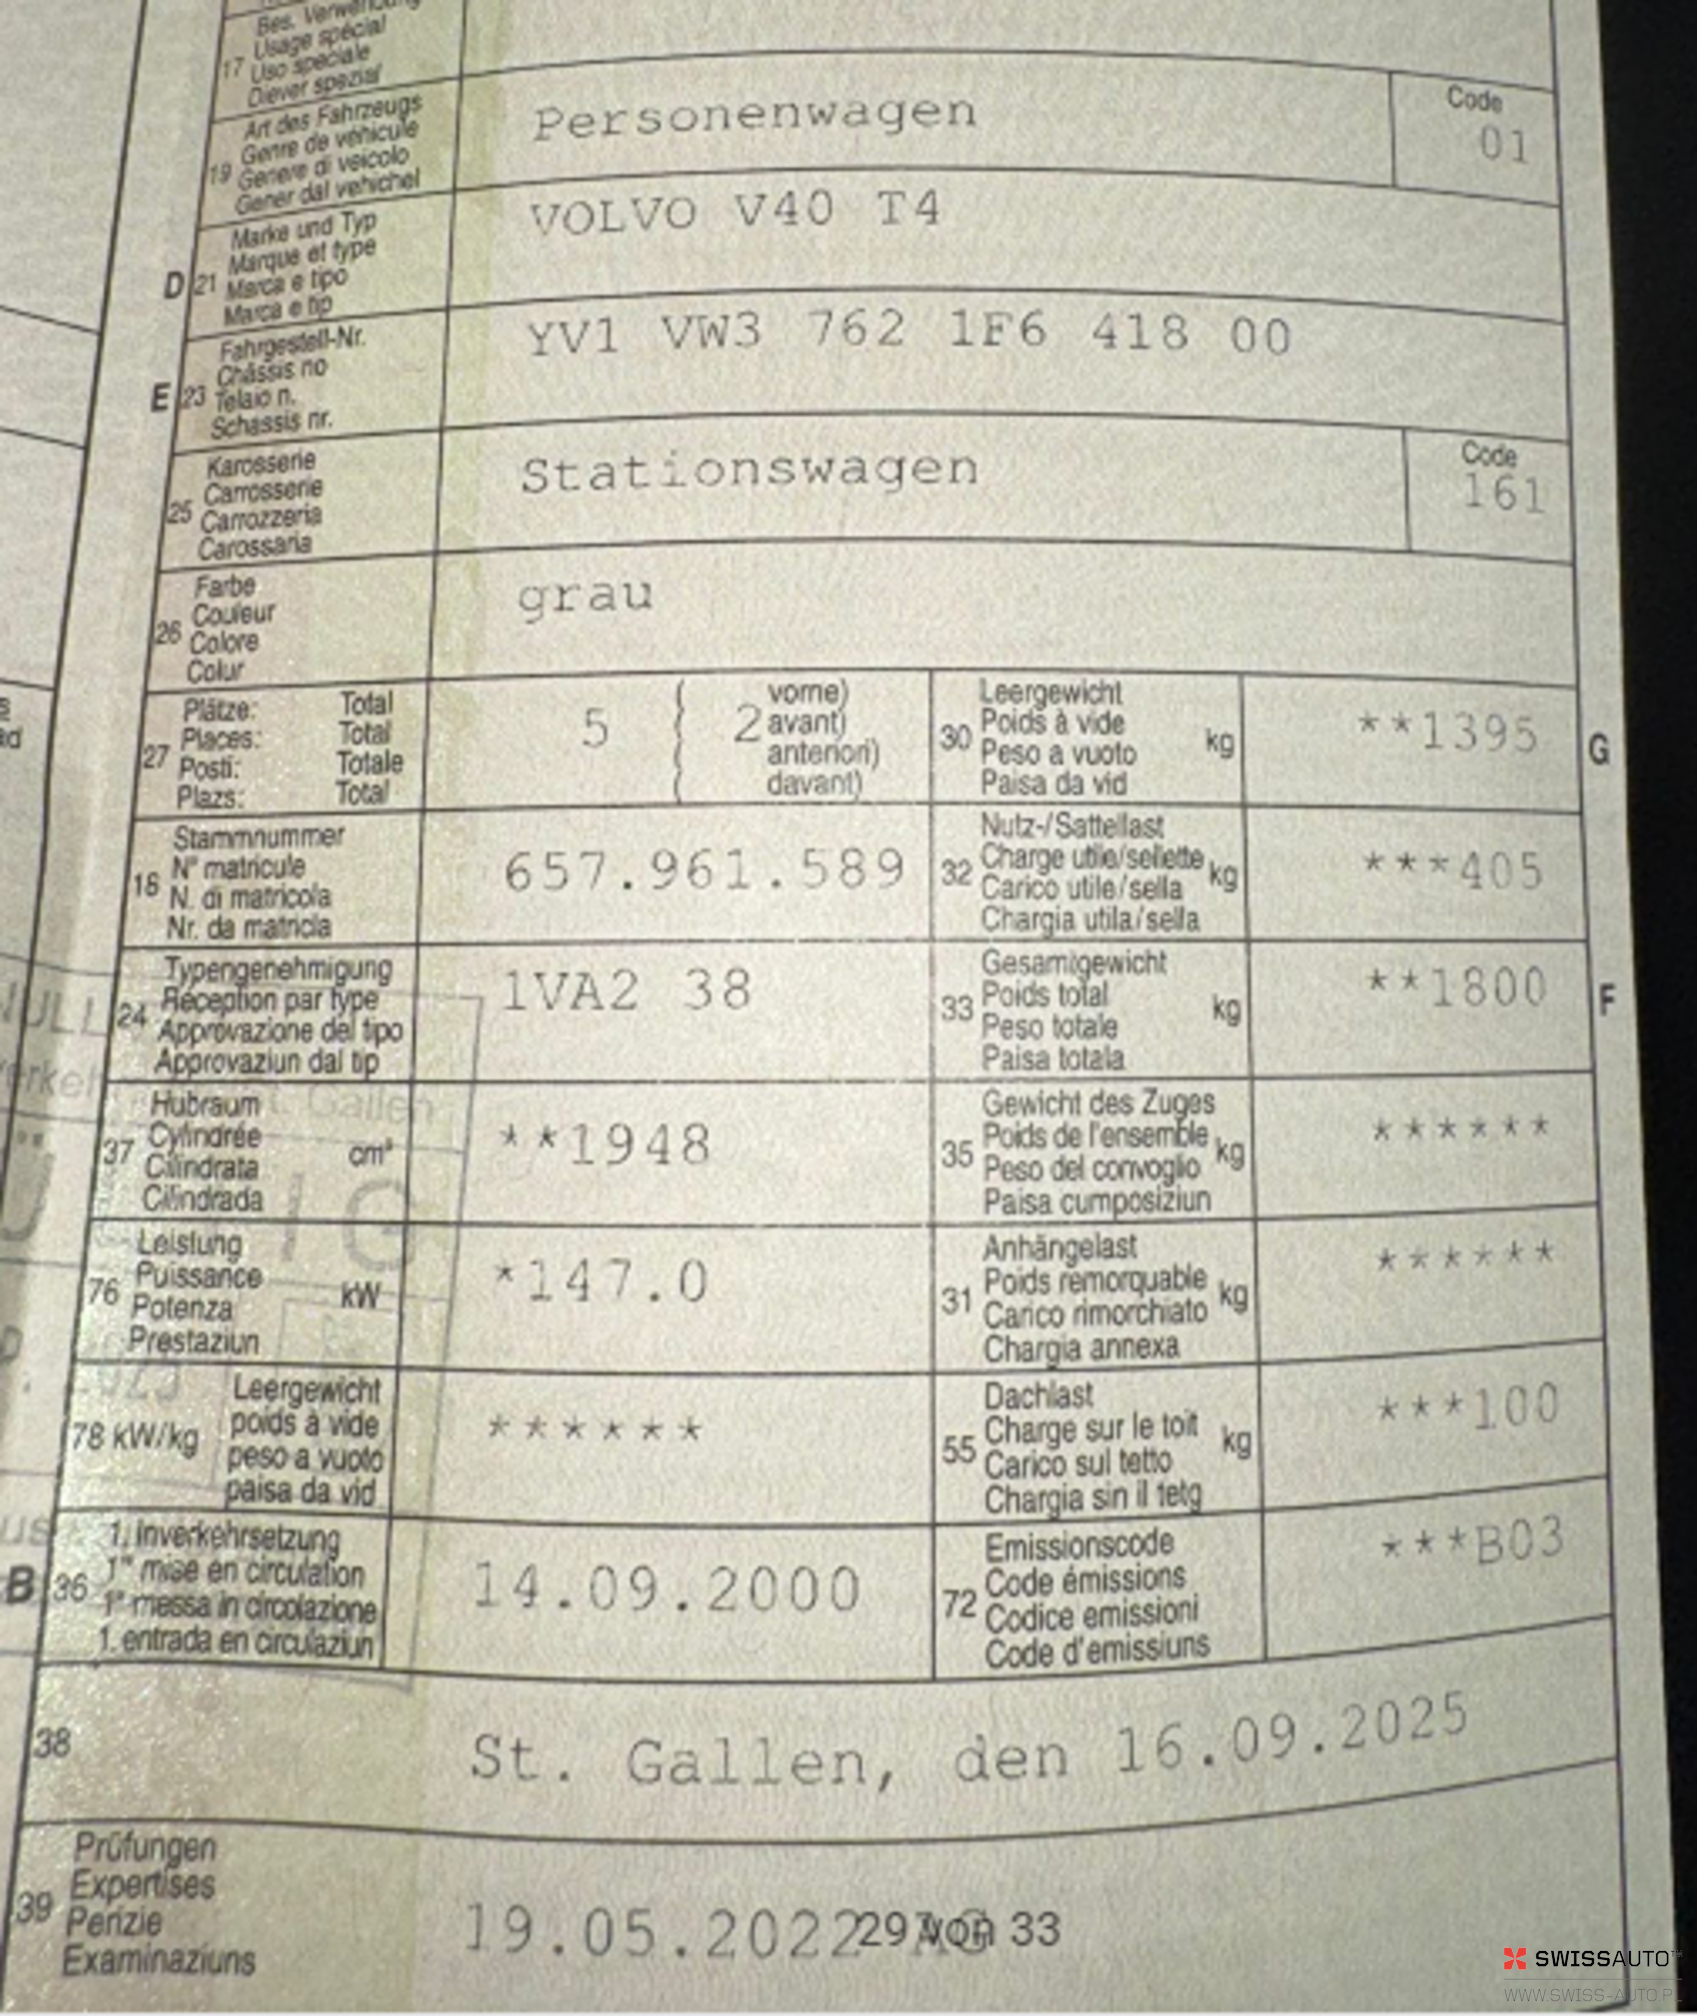 Bes. Verwendung
Usage spécial
17 Uso speciale
Diever spezial
Art des Fahrzeugs
Genre de véhicule
19 Genere di veicolo
Gener dal vehichel
Personenwagen
Code
01
Marke und Typ
Marque et type
D 21 Marca e tipo
Marca e tip
VOLVO V40 T4
Fahrgestell-Nr.
Châssis no
E 23 Telaio n.
Schassis nr.
YV1 VW3 762 1F6 418 00
Karosserie
Carrosserie
25 Carrozzeria
Carossaria
Stationswagen
Code
161
Farbe
Couleur
26 Colore
Colur
grau
Plätze: Total
Places: Total
27 Posti: Totale
Plazs: Total
5 ( 2 vorne)
( avant)
( anteriori)
( davant)
Leergewicht
30 Poids à vide
Peso a vuoto kg
Paisa da vid
**1395
G
Stammnummer
N° matricule
18 N. di matricola
Nr. da matricla
657.961.589
Nutz-/Sattellast
32 Charge utile/sellette kg
Carico utile/sella
Chargia utila/sella
***405
Typengenehmigung
24 Réception par type
Approvazione del tipo
Approvaziun dal tip
1VA2 38
Gesamtgewicht
33 Poids total kg
Peso totale
Paisa totala
**1800
F
Hubraum
37 Cylindrée cm³
Cilindrata
Cilindrada
**1948
Gewicht des Zuges
35 Poids de l'ensemble kg
Peso del convoglio
Paisa cumposiziun
******
Leistung
76 Puissance kW
Potenza
Prestaziun
*147.0
Anhängelast
31 Poids remorquable kg
Carico rimorchiato
Chargia annexa
******
78 kW/kg
Leergewicht
poids à vide
peso a vuoto
paisa da vid
******
Dachlast
55 Charge sur le toit kg
Carico sul tetto
Chargia sin il tetg
***100
1. Inverkehrsetzung
B 36 1re mise en circulation
1a messa in circolazione
1. entrada en circulaziun
14.09.2000
Emissionscode
72 Code émissions
Codice emissioni
Code d'emissiuns
***B03
38
St. Gallen, den 16.09.2025
Prüfungen
39 Expertises
Perizie
Examinaziuns
19.05.2022 AG
29 von 33
SWISSAUTO
WWW.SWISS-AUTO.PL